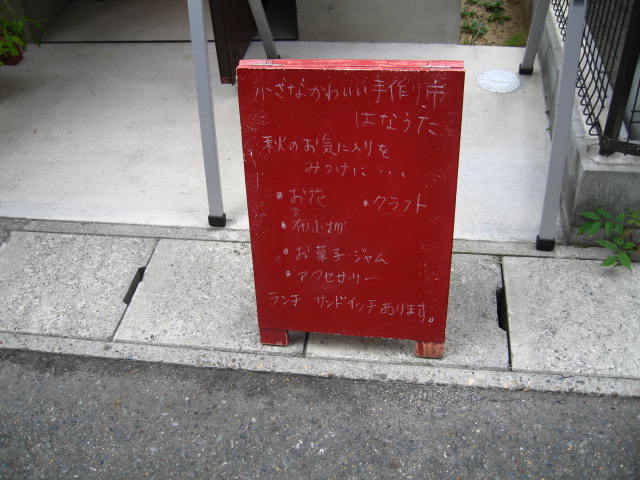 小さなかわいい手作り市
はなうた
秋のお気に入りを
みつけに・・・
・お花 ・クラフト
・布小物
・お菓子・ジャム
・アクセサリー
ランチ サンドイッチあります。